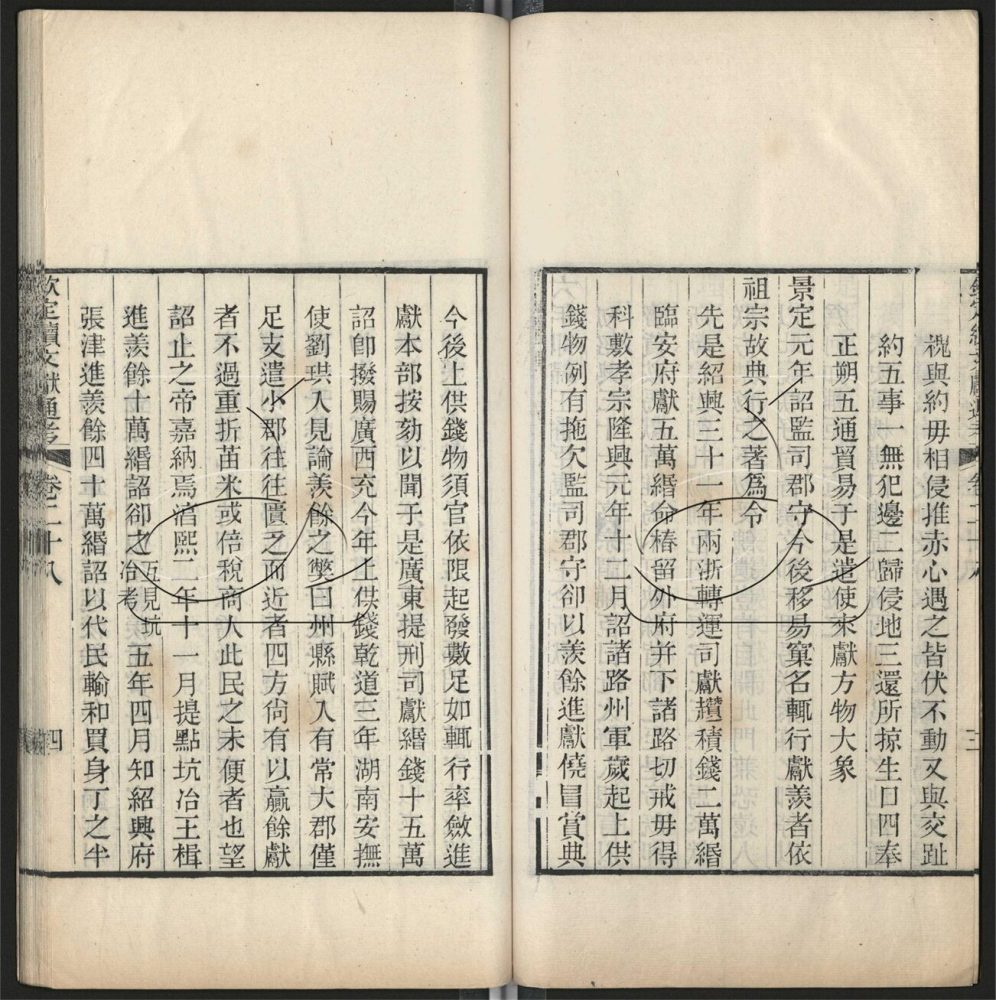 視與約毋相侵推赤心遇之皆伏不動又與交趾
約五事一無犯邊二歸侵地三還所掠生口四奉
正朔五通貿易于是遣使來獻方物大象
景定元年詔監司郡守今後移易窠名輒行獻羨者依
祖宗故典行之著爲令
先是紹興三十一年兩浙轉運司獻趲積錢二萬緡
臨安府獻五萬緡命樁留外府并下諸路切戒毋得
科敷孝宗隆興元年十二月詔諸路州軍歲起上供
錢物例有拖欠監司郡守卻以羨餘進獻僥冒賞典
今後上供錢物須官依限起發數足如輒行率斂進
獻本部按劾以聞于是廣東提刑司獻緡錢十五萬
詔卽撥賜廣西充今年上供錢乾道三年湖南安撫
使劉珙入見論羨餘之獘曰州縣賦入有常大郡僅
足支遣小郡往往匱乏而近者四方尙有以贏餘獻
者不過重折苗米或倍稅商人此民之未便者也望
詔止之帝嘉納焉淳熙二年十一月提點坑冶王楫
進羨餘十萬緡詔卻之互見坑冶考五年四月知紹興府
張津進羨餘四十萬緡詔以代民輸和買身丁之半
欽定續文獻通考 卷二十八 四